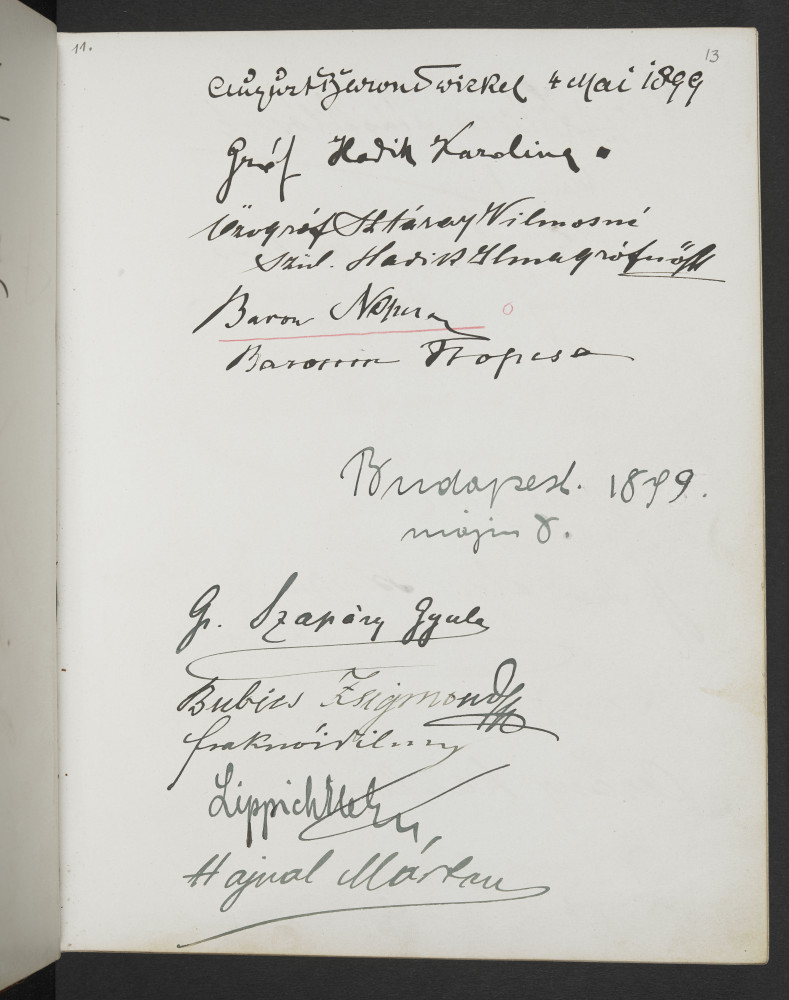 11.
13
August Baron Twickel 4 Mai 1899
Gróf Hadik Karolina
özv gróf Sztáray Wilmosné
szül. Hadik Ilma grófnő
Baron Nopcsa
Baronin Nopcsa
Budapest. 1899.
május 8.
Gr. Szapáry Gyula
Bubics Zsigmond
Fraknói Vilmos
Lippich
Hajnal Márton